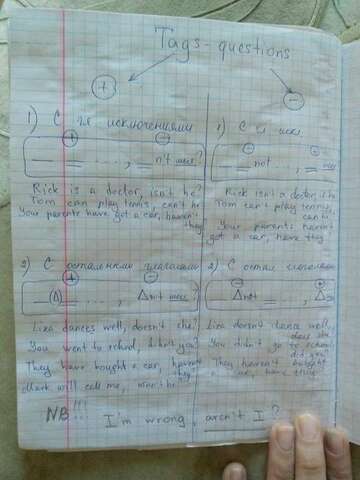 Tags-questions
+
-
1) С гл исключениями
+ -
____ ___ ...., ___n't мест?
Rick is a doctor, isn't he?
Tom can play tennis, can't he
Your parents have got a car, haven't
they
2) С остальными глаголами
+ -
(Δ) ...., Δn't мест?
Liza dances well, doesn't she?
You went to school, didn't you?
They have bought a car, haven't
they
Mark will call me, won't he
1) С гл искл
- +
not ...., ___ мест
Rick isn't a doctor, is he
Tom can't play tennis,
can
Your parents haven't
got a car, have they
2) С остал глаголами
- +
Δnot ...., Δ
Liza doesn't dance well,
does she
You didn't go to school
did you
They haven't bought
car, have they
NB!!! I'm wrong, aren't I?